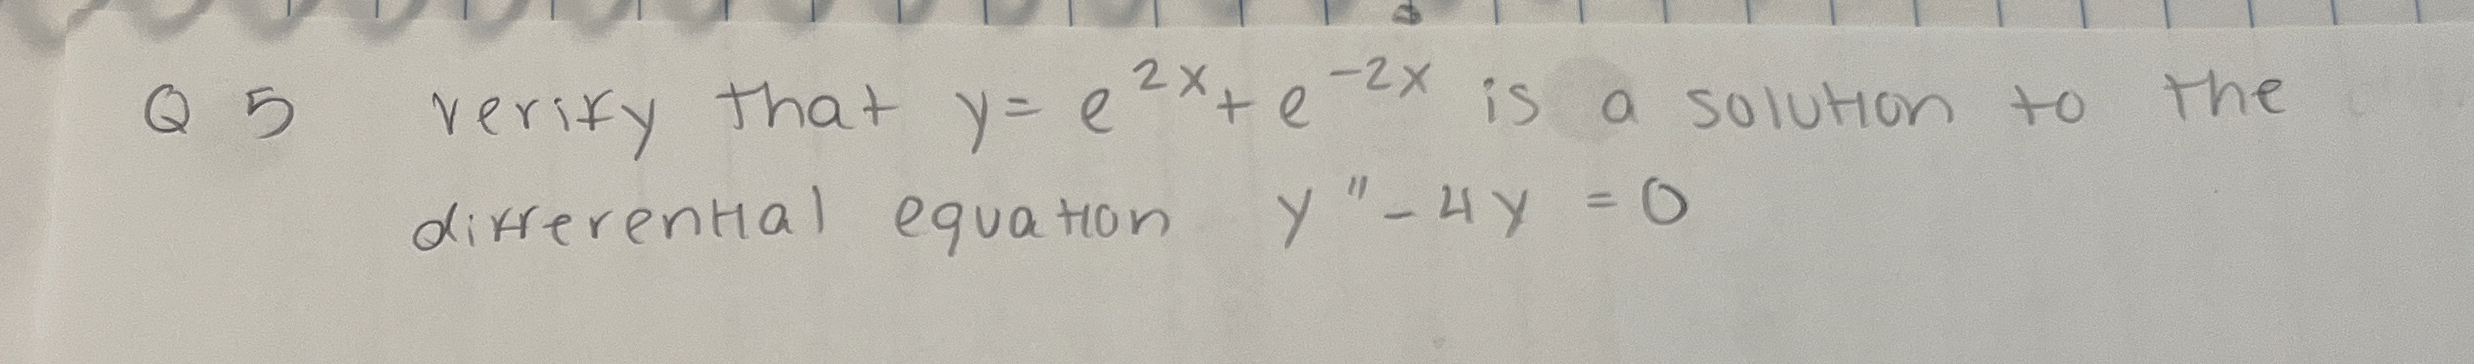 Q 5 verify that y = e^{2x} + e^{-2x} is a solution to the
differential equation y'' - 4y = 0